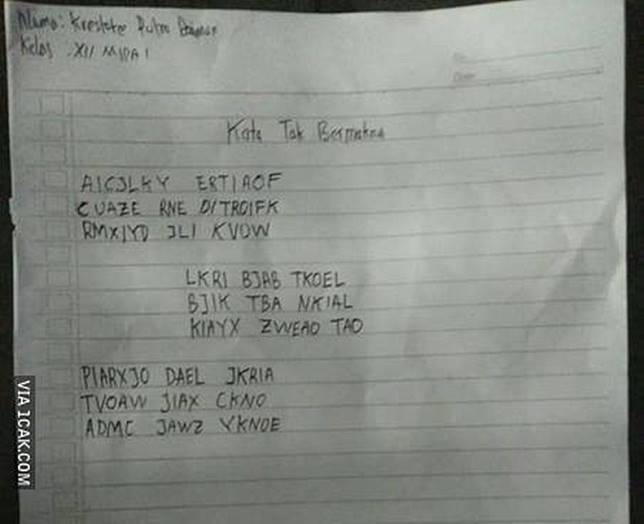 Nama: Putra
Kelas : XII MIPA 1
No
Date
Kata Tak Bermakna
AICJLKY ERTIAOF
CUAZE RNE DITROIFK
RMXIYD JLI KVOW
LKRI BJAB TKOEL
BJIK TBA NKIAL
KIAYX ZWEAO TAO
PIARXJO DAEL JKRIA
TVOAW JIAX CKNO
ADMC JAWZ YKNOE
VIA 1CAK.COM